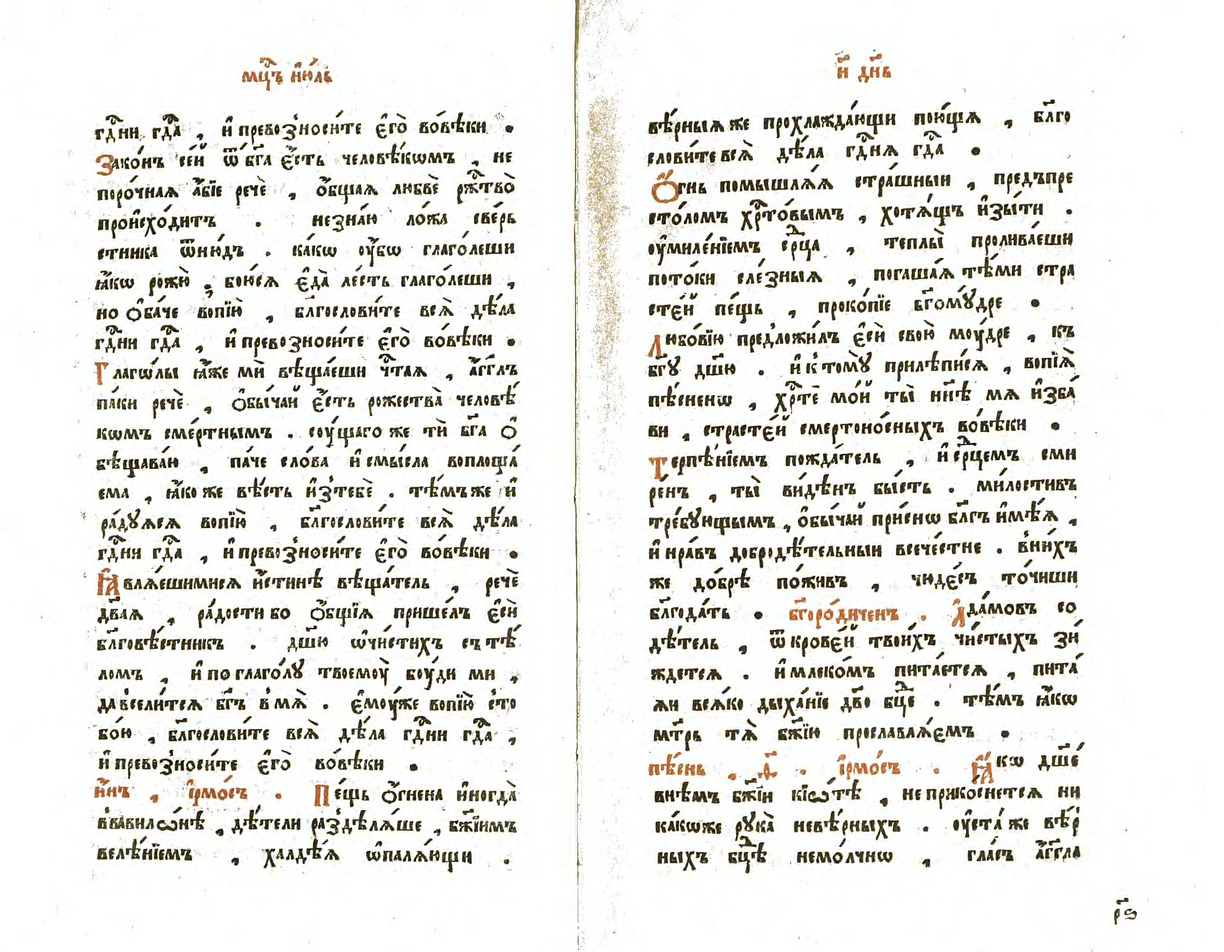 мцⷭ҇ъ і҆ю́ль
гдⷭ҇ни гдⷭ҇а , и҆ превозноси́те є҆го̀ во́вѣки .
Зако́нъ се́й ѿ бг҃а є҆́сть человѣ́кѡмъ , не
поро́чная а҆́бїе речѐ , ѻ҆́бщая любвѐ рж҃тво̀
происхо́дитъ . незна́ю ло́жа свѣрь
стника ѿню́дъ . ка́кѡ ѹ҆́бѡ глаго́леши
ꙗ҆́кѡ рожю̀ ; бою́сѧ є҆да̀ ле́сть глаго́леши ,
но ѻ҆ба́че вопїю̀ , бл҃гослови́те всѧ̀ дѣ́ла
гдⷭ҇ни гдⷭ҇а , и҆ превозноси́те є҆го̀ во́вѣки .
Глаго́лы ꙗ҆́же мѝ вѣща́еши чⷭ҇таѧ , а҆́гг҃лъ
па́ки речѐ , ѻ҆бы́чай є҆́сть рожества̀ человѣ́
кѡмъ сме́ртнымъ . соу́щаго же тѝ бг҃а ѻ҆
бѣщава́ю , па́че сло́ва и҆ смы́сла воплоща́
ема , ꙗ҆́ко же вѣ́сть и҆з̾тебѐ . тѣ́мъ же и҆
ра́дꙋѧсѧ вопїю̀ , бл҃гослови́те всѧ̀ дѣ́ла
гдⷭ҇ни гдⷭ҇а , и҆ превозноси́те є҆го̀ во́вѣки .
Ꙗ҆влѧ́ешимисѧ и҆́стинѣ вѣща́тель , речѐ
дв҃аѧ , ра́дости бо ѻ҆́бщїѧ пришéлъ є҆сѝ
бл҃говѣ́стникъ . дш҃ю ѡ҆чи́стихъ съ тѣ́
ломъ , и҆ по глаго́лꙋ твоемоу̀ боу́ди ми ,
да всели́тсѧ бг҃ъ в̾ мѧ̀ . є҆моу́же вопїю̀ с̾то
бо́ю , бл҃гослови́те всѧ̀ дѣ́ла гдⷭ҇ни гдⷭ҇а ,
и҆ превозноси́те є҆го̀ во́вѣки .
и҆́нъ , і҆рмо́съ . Пе́щь ѻ҆́гнена и҆ногда̀
в̾ вавилѡ́нѣ , дѣ́тели раз̾дѣлѧ́ше , бж҃їимъ
велѣ́нїемъ , халдѣ́ѧ ѡ҆палѧ́ющи .
и҃ дн҃ь
вѣ́рныѧ же прохлажда́ющи пою́щѧ , бл҃го
слови́те всѧ̀ дѣ́ла гдⷭ҇нѧ гдⷭ҇а .
Ѻ҆́гнь помышлѧ́ѧ стра́шныи , предъпре
сто́ломъ хрⷭ҇то́вымъ , хотѧ́щъ и҆зы́ти .
оу҆миле́нїемъ срⷣца , те́плы̀ пролива́еши
пото́ки сле́зныѧ , погаша́ѧ тѣ́ми стра
сте́й пе́щь , проко́пїе бг҃омꙋ́дре .
Любо́вїю предложи́лъ є҆сѝ свою̀ моу́дре , къ
бг҃у дш҃ю . и҆ к томꙋ̀ прилѣпи́сѧ , вопїѧ̀
пѣ́сненѡ , хрⷭ҇тѐ мо́й ты̀ нн҃ѣ мѧ и҆зба́
ви , страсте́й смертоно́сныхъ во́вѣки .
Терпѣ́нїемъ пожда́тель , и҆ срⷣцемъ сми
ре́нъ , ты̀ ви́дѣнъ бы́сть . ми́лостивъ
тре́бующымъ , ѻ҆бы́чаи при́снѡ бл҃гъ и҆мѣ́ѧ ,
и҆ нра́въ добродѣ́тельныи всече́стне . в̾ни́хъ
же до́брѣ пожи́въ , чюде́съ то́чиши
бл҃года́ть . бг҃оро́диченъ . А҆да́мовъ со
дѣ́тель , ѿ крове́й твои́хъ чи́стыхъ зи́
ждетсѧ . и҆ млеко́мъ пита́етсѧ , пита́
ѧи всѧ́ко дыха́нїе дв҃о бцⷣе . тѣ́мъ ꙗ҆́кѡ
мт҃рь тѧ̀ бж҃їю прославлѧ́емъ .
пѣ́снь , ѳ҃ . і҆рмо́съ . Ꙗ҆́кѡ дш҃е́
внѣмъ бж҃їи кїѡ́тѣ , не прикосне́тсѧ ни
ка́коже рꙋка̀ невѣ́рныхъ . оу҆ста́ же вѣ́р
ныхъ бцⷣѣ немо́лчнѡ , гла́съ а҆́гг҃ла
р҃ѕ